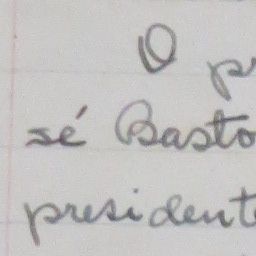 O pr
sé Basto
president